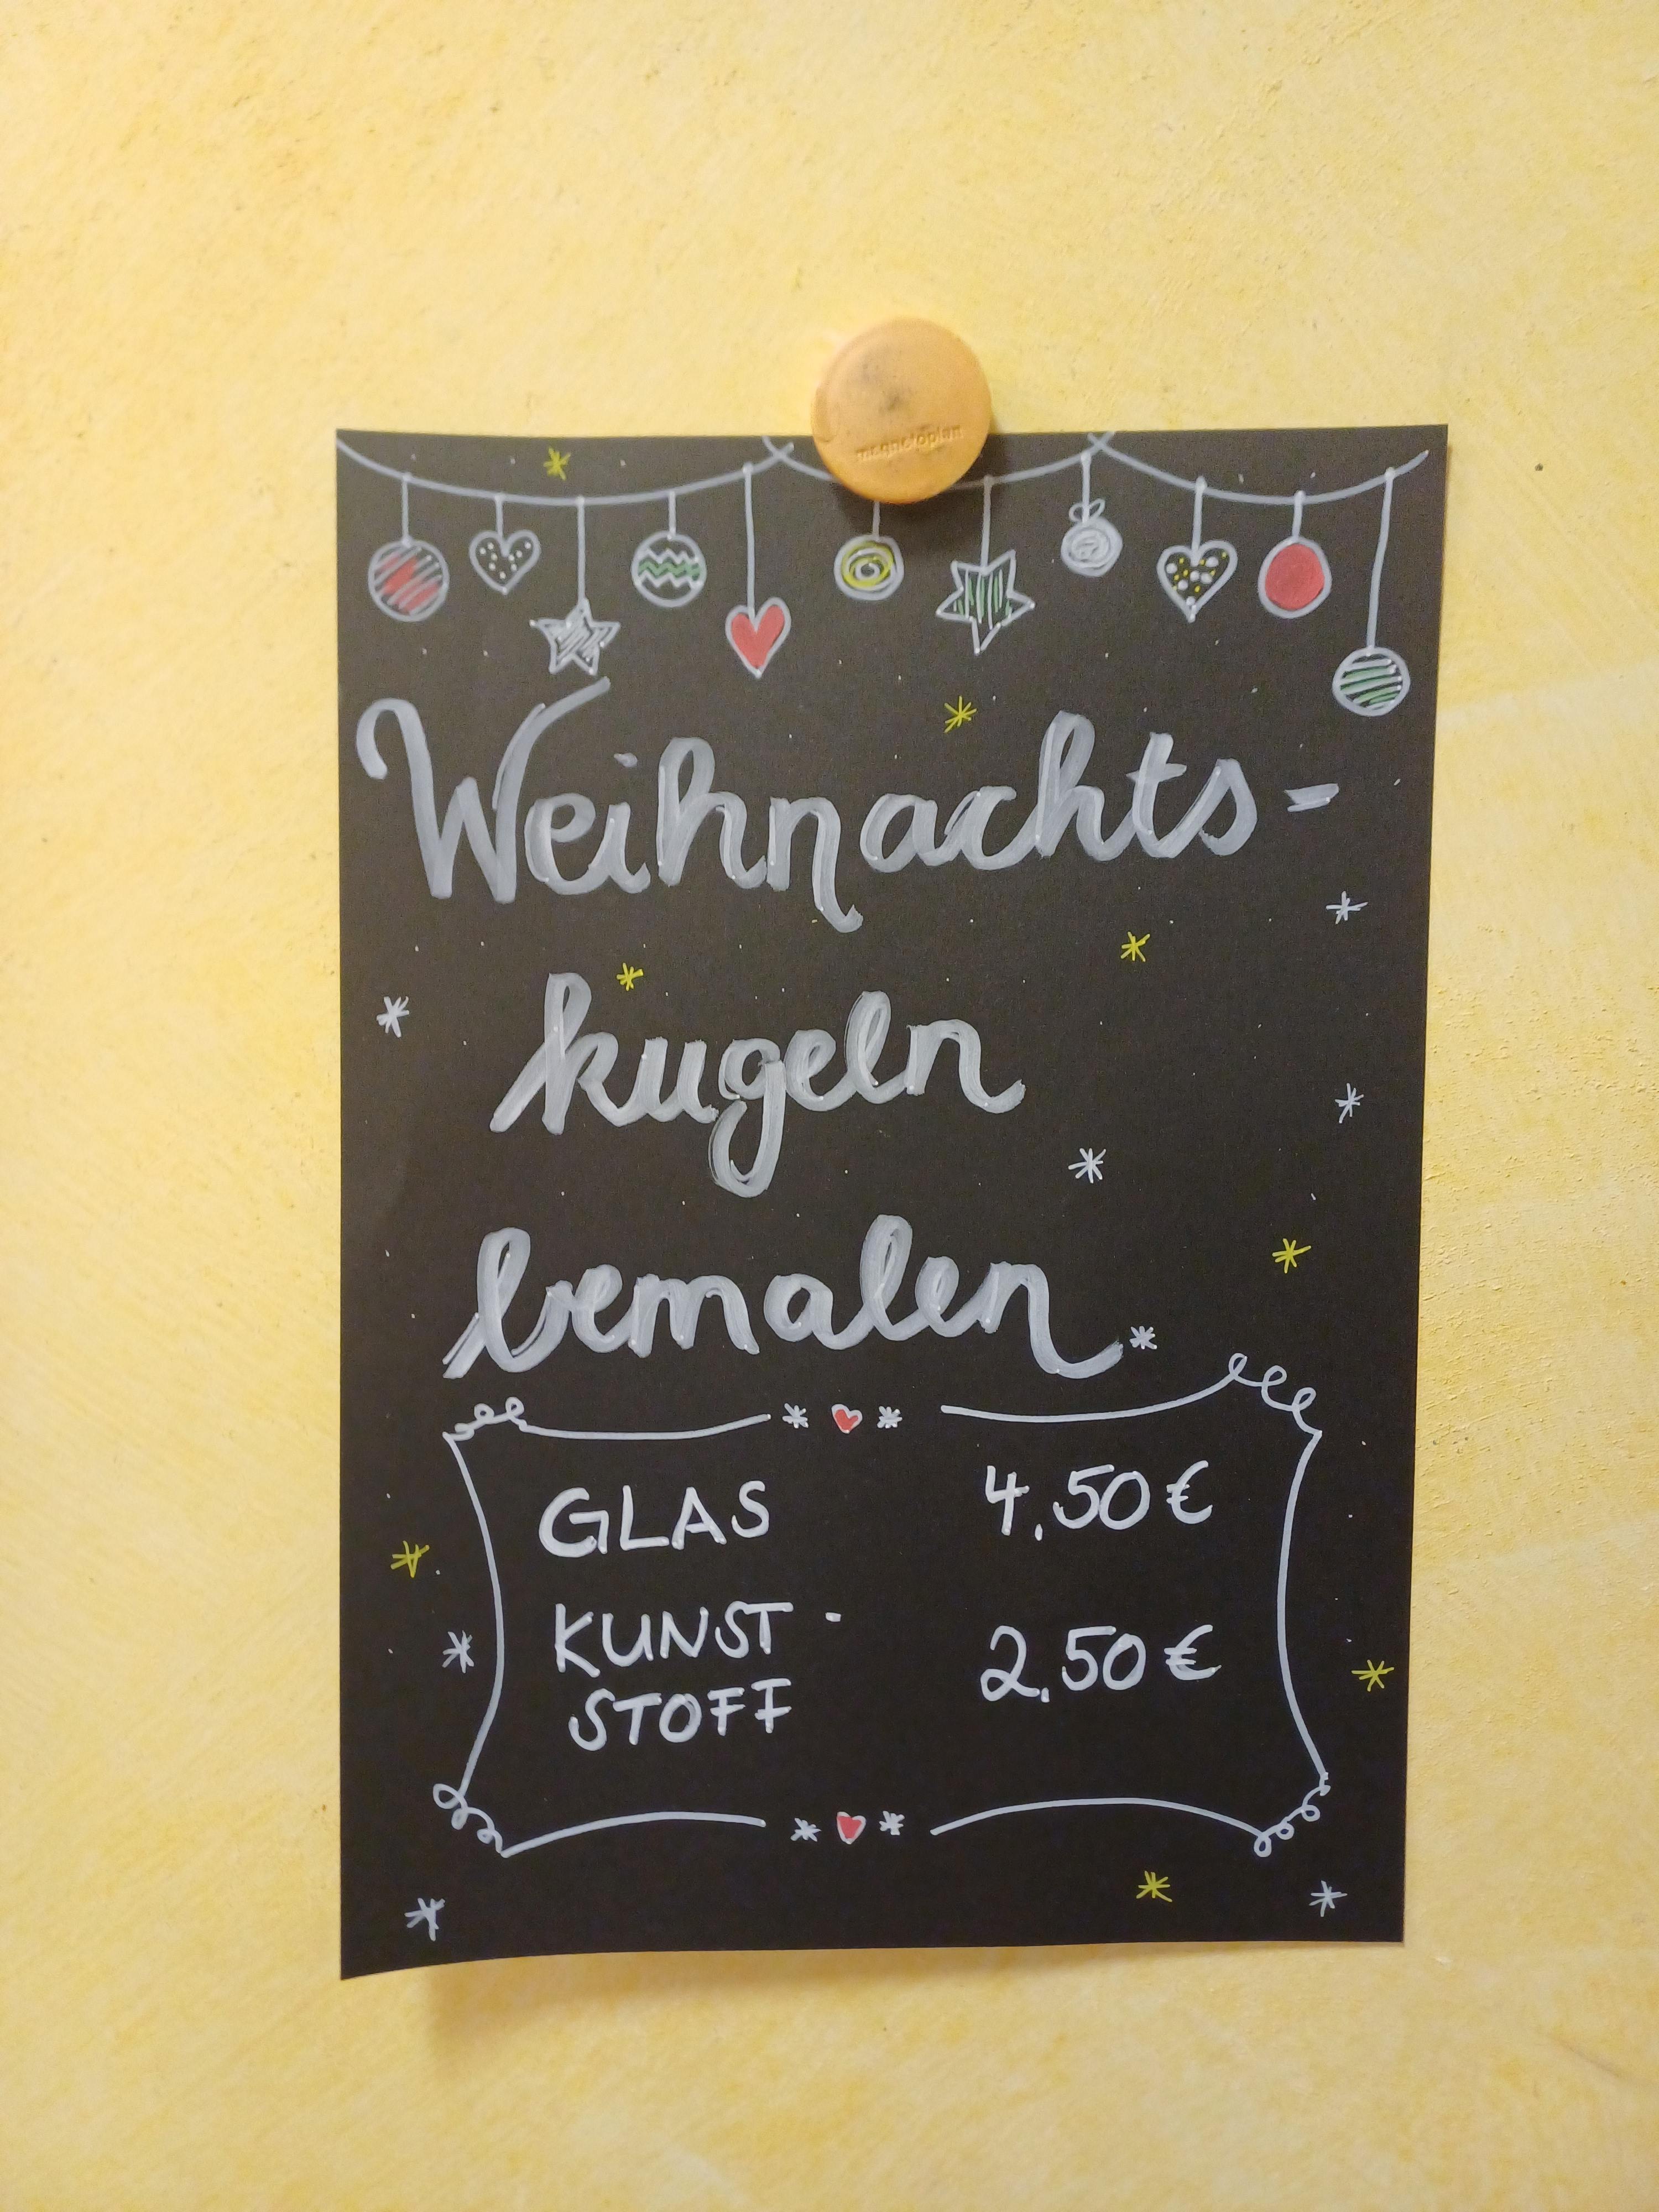 magnetoplan
Weihnachts-
kugeln
bemalen
GLAS 4,50€
KUNST- 2,50€
STOFF